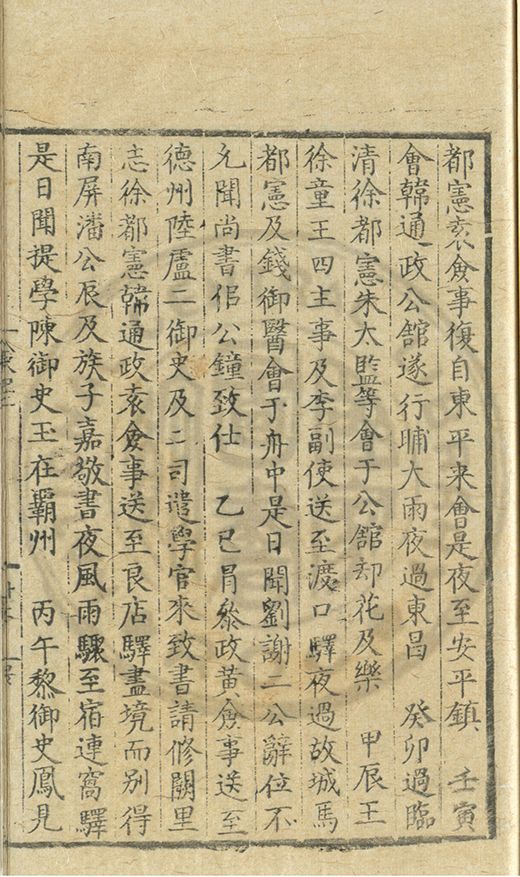 都憲袁僉事復自東平来會是夜至安平鎮　壬寅
會韓通政公舘遂行晡大雨夜過東昌　癸卯過臨
清徐都憲朱太監等會于公舘却花及樂　甲辰王
徐童王四主事及李副使送至渡口驛夜過故城馬
都憲及錢御醫會于舟中是日聞劉謝二公辭位不
允聞尚書侶公鐘致仕　乙巳冐叅政黄僉事送至
德州陸盧二御史及二司遣學官來致書請修闕里
志徐都憲韓通政袁僉事送至良店驛盡境而别得
南屏潘公辰及族子嘉敬書夜風雨驟至宿連窩驛
是日聞提學陳御史玉在霸州　丙午黎御史鳳見